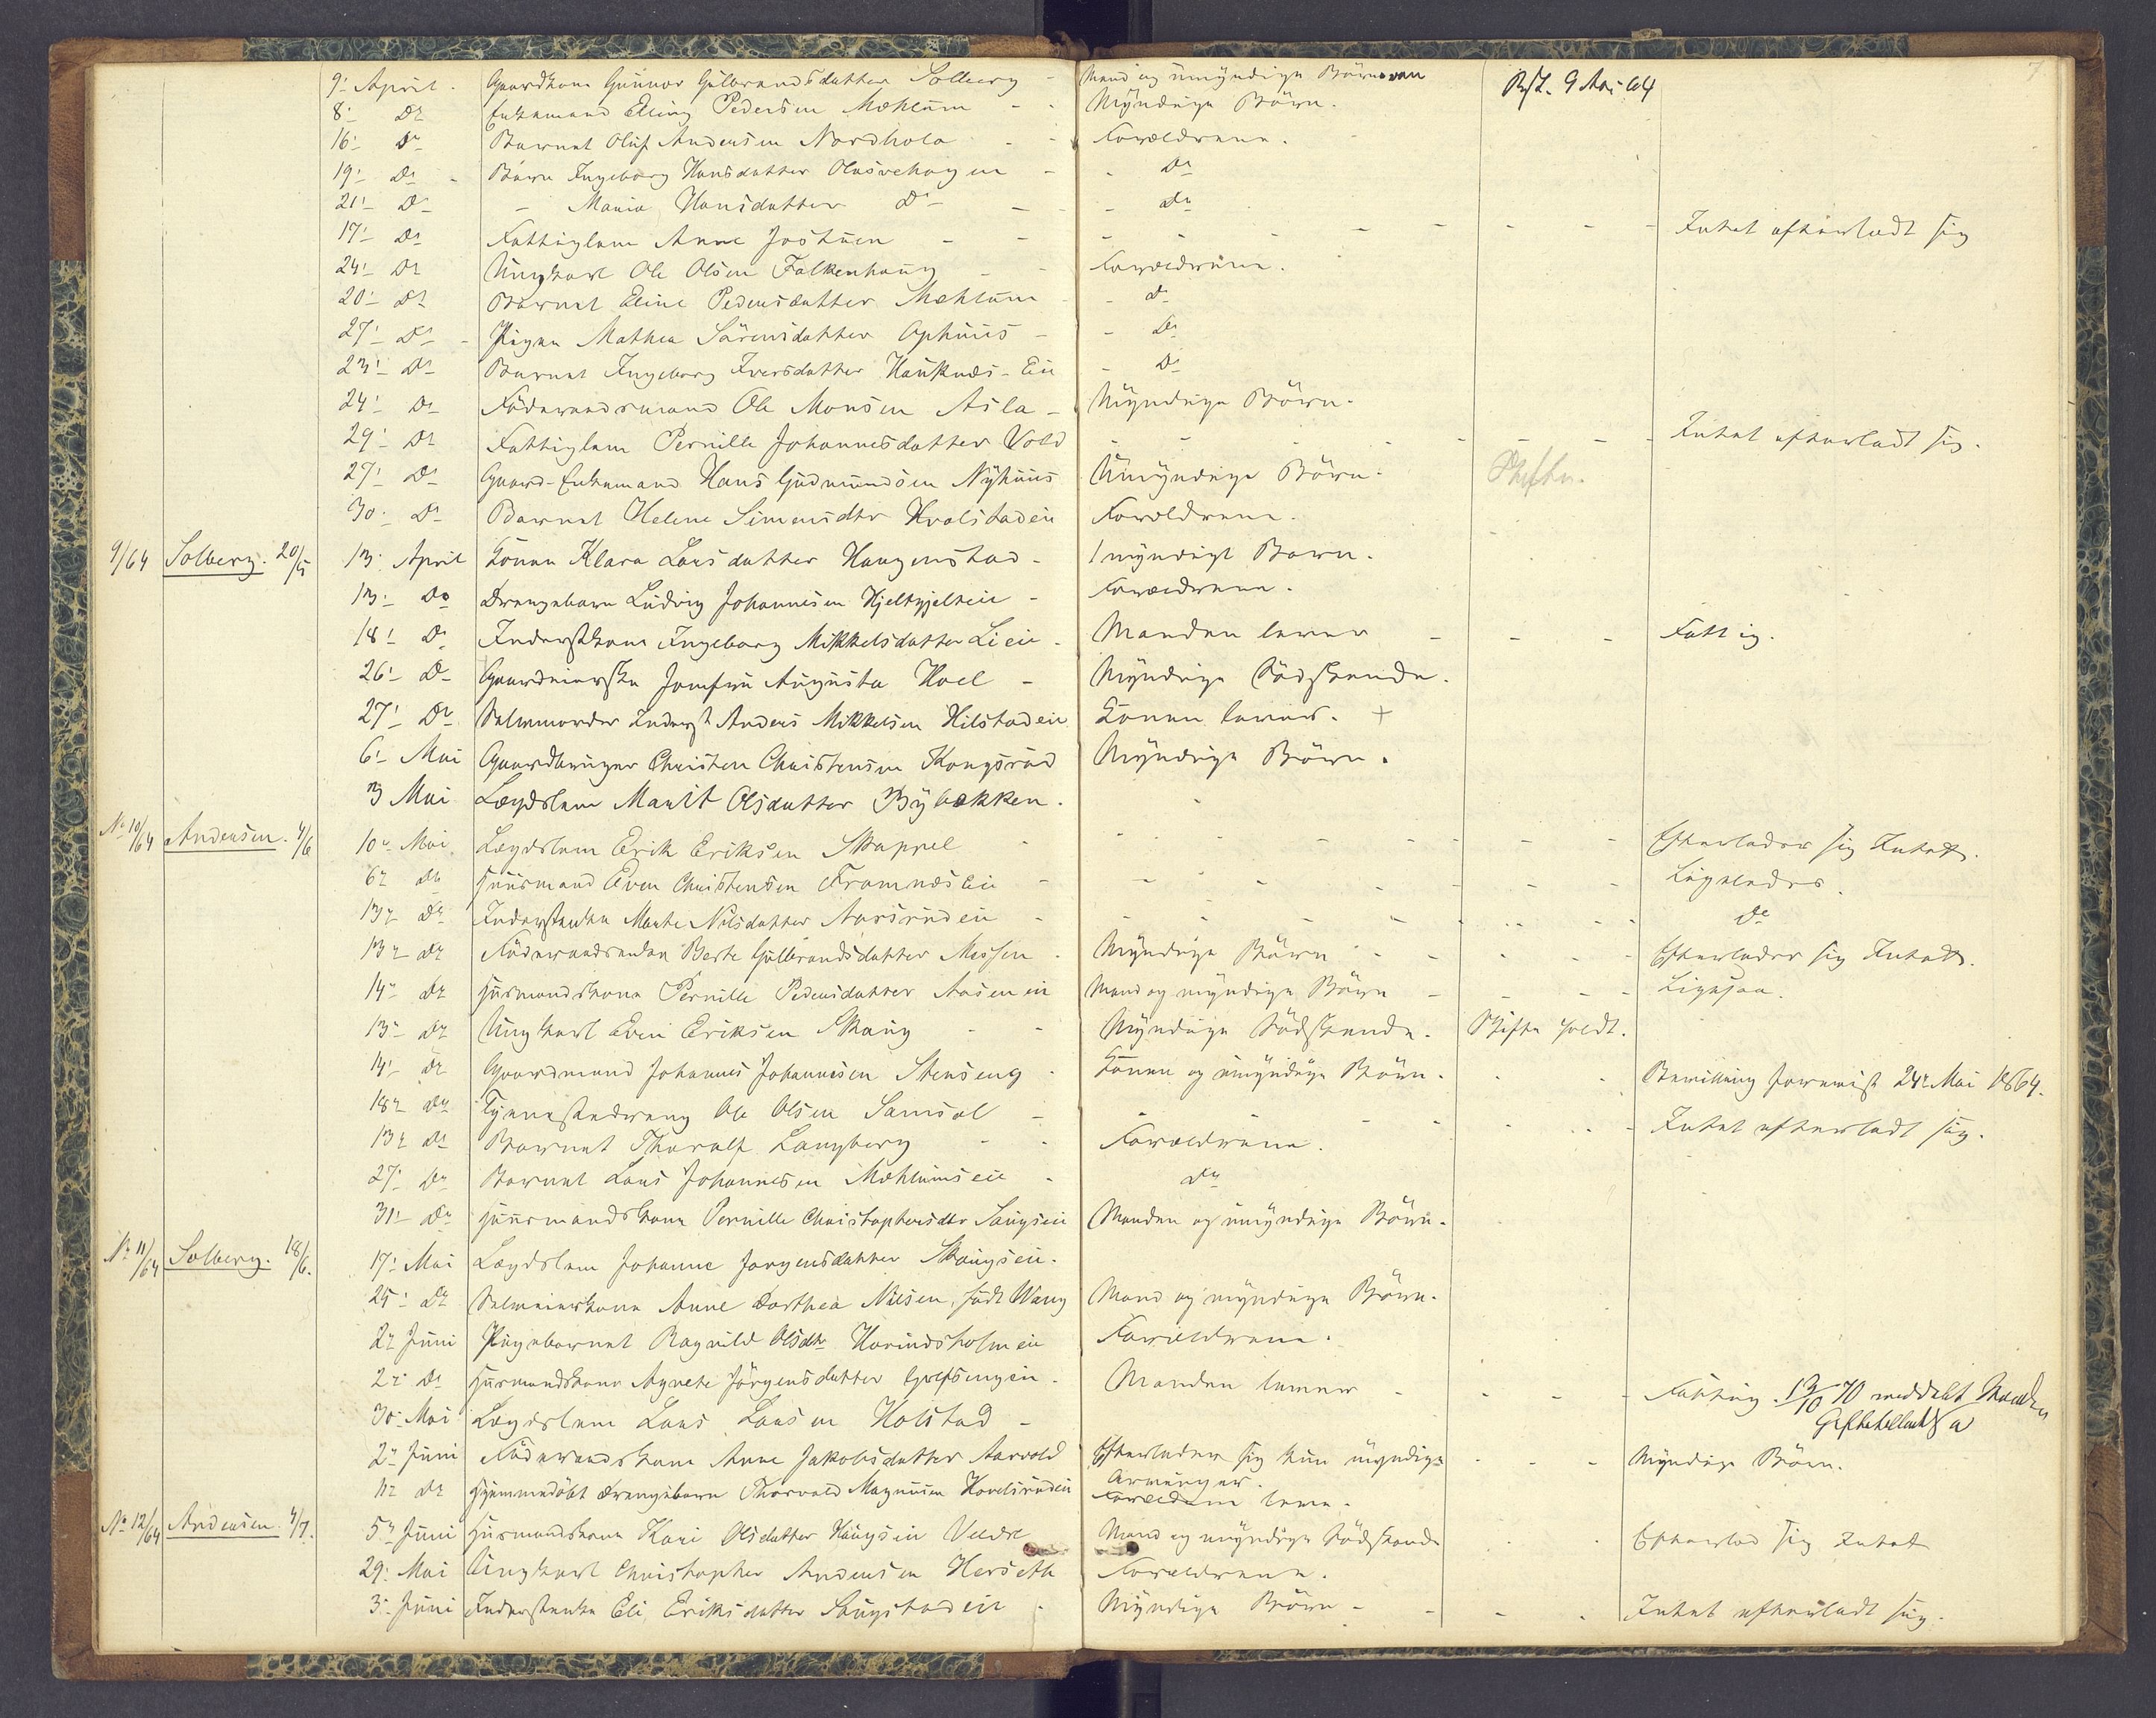 7
9- April. Gaardkone Gunnor Gulbrandsdatter Solberg - Mand og umyndige Børn Bst. 9 Mai 64
8- Do Enkemand Elling Pedersen Mæhlum - - Myndige Børn.
16- Do Barnet Oluf Andersen Nordhole - - Forældrene.
19- Do - Barn Ingeborg Hansdatter Olasvehagen - - Do
21- Do - Maria Hansdatter Do - - - Do
17- Do Fattiglem Anne Jostuen - - - - - - - - - - Intet efterladt sig
24- Do Ungkarl Ole Olsen Falkenhaug - - Forældrene.
20- Do Barnet Eline Pedersdatter Mæhlum - - Do
27- Do - Pigen Mathea Sørensdatter Ophuus - - Do
23- Do Barnet Ingeborg Iversdatter Hauknes-Eie - Do
24- Do Føderaadsmand Ole Monsen Asla - Myndige Børn.
29- Do Fattiglem Pernille Johannesdatter Vold - - - - - - - - Intet efterladt sig.
27- Do Gaard-Enkemand Hans Gudmundsen Nyhuus Umyndige Børn. Skiftes.
30- Do Barnet Helene Simensdtr Kvolstadeie Forældrene.
9/64 Solberg. 20/5 13- April Konen Klara Larsdatter Haugenstad - 1 myndigt Barn.
13- Do Drengebarn Ludvig Johannesen Hjeltjelteie - Forældrene.
18- Do Inderstkone Ingeborg Mikkelsdatter Lieeie - Manden lever - - - Fattig.
26- Do Gaardeierske Jomfru Augusta Hoel - Myndige Sødskende.
27- Do Selvmorder Inderst Anders Mikkelsen Hilstadeie Konen lever. +
6- Mai Gaardbruger Christen Christensen Kongsrud Myndige Børn.
3 Mai Lægdslem Marit Olsdatter Bybækken. -
No 10/64 Andersen. 4/6 10- Mai Lægdslem Erik Eriksen Skappel - - - - - - - - Efterlader sig Intet.
6- Do Huusmand Even Christensen Framnes Eie - - - - - - - - Ligeledes.
13- Do Inderstenke Marte Nilsdatter Aarsrudeie - - - - - - - - Do
13- Do Føderaadsenken Berte Gulbrandsdatter Messen - Myndige Børn - - - - - Efterlader sig Intet.
14- Do Husmandskone Pernille Pedersdatter Aaseneie Mand og myndige Børn - - - - Ligesaa.
13- Do Ungkarl Even Eriksen Skaug - - Myndige Sødskende. Skifte holdt.
14- Do Gaardmand Johannes Johannesen Stenseng - Konen og umyndige Børn. - - Bevilling forevist 24- Mai 1864.
18- Do Tjenestedreng Ole Olsen Samsal - - - - - - - - Intet efterladt sig.
13- Do Barnet Tharald Langberg - - Forældrene.
27- Do Barnet Lars Johannesen Mæhlumseie - Do
31- Do Huusmandskone Pernille Christophersdtr Saugeie Manden og umyndige Børn.
No 11/64 Solberg. 18/6. 17- Mai Lægdslem Johanne Jørgensdatter Skaugseie.
25- Do Selveierkone Anne Dorthea Nilsen, født Wang Mand og myndige Børn.
2- Juni Pigebarnet Ragnild Olsdtr Horindsholmeie Forældrene.
2- Do Husmandskone Agnete Jørgensdatter Grefsengeie - Manden lever - - - - Fattig. 13/10 70 meddelt Manden
Giftetilladelse
30- Mai Lægdslem Lars Larsen Kolstad -
2- Juni Føderaadskone Anne Jakobsdatter Aarvold Efterlader sig kun myndige - - - Myndige Børn.
Arvinger.
11- Do Hjemmedøbt Drengebarn Thorvald Magnusen Hovelsrudeie Forældrene lever.
No 12/64 Andersen. 4/7. 5- Juni Husmandskone Kari Olsdatter Haugseie Veldre Mand og myndige Sødskende - - Efterlod sig Intet
29- Mai Ungkarl Christopher Andersen Herseth Forældrene.
3- Juni Inderstenke Eli Eriksdatter Saugstadeie - Myndige Børn - - - - Intet efterladt sig.